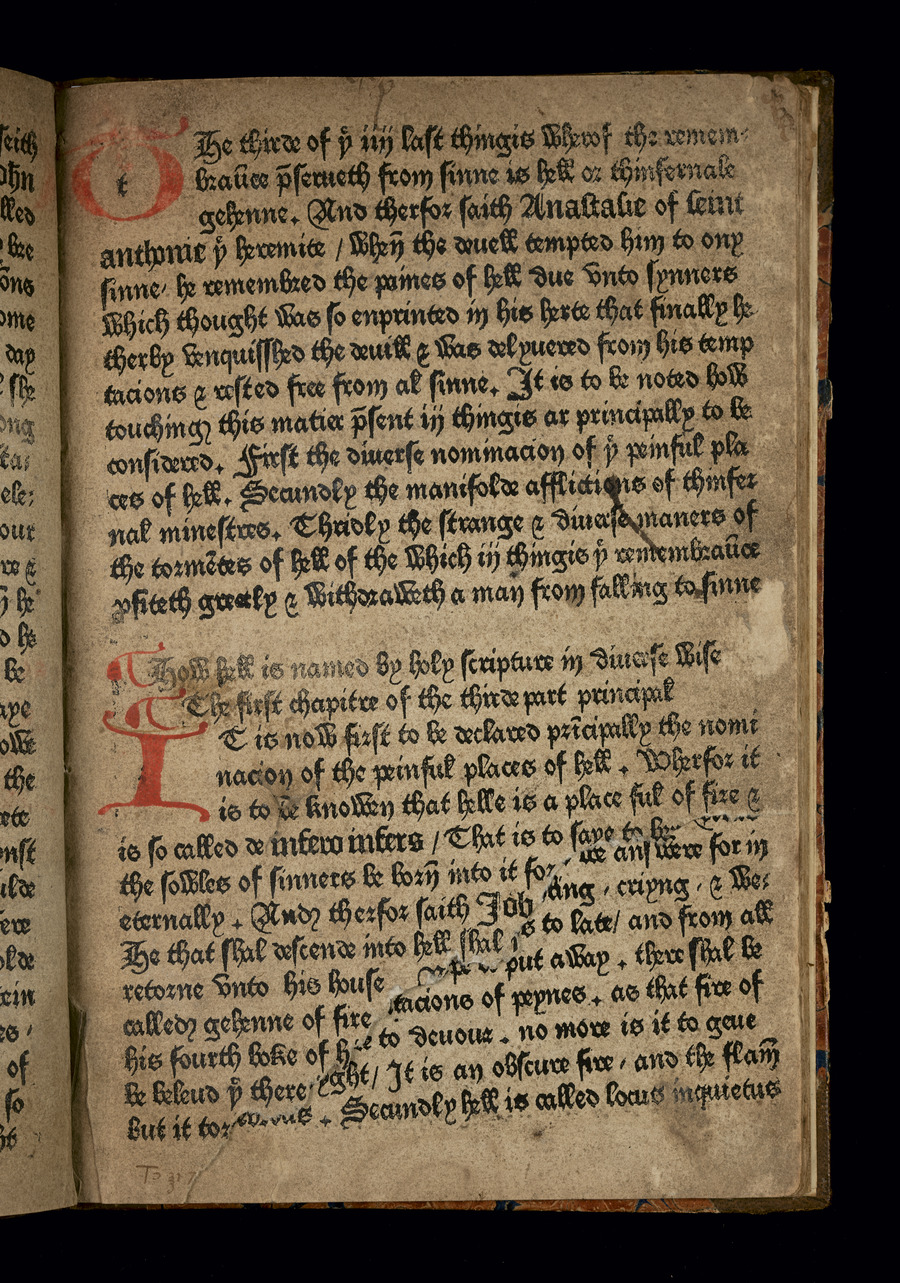 THe thirde of yͤ iiij last thingis wherof the remem-
braūce p̄serueth from sinne is hell or thinfernale
gehenne. And therfor saith Anastasie of seint
anthonie yͤ heremite / when̄ the deuell tempted him to ony
sinne, he remembred the paines of hell due vnto synners
which thought was so enprinted in his herte that finally he
therby venquisshed the deuill & was delyuered from his temp
tacions & rested free from al sinne. It is to be noted how
touching this matier p̄sent iij thingis ar principally to be
considered. First the diuerse nominacion of yͤ peinful pla
ces of hell. Secundly the manifolde afflictions of thinfer
nal minestres. Thridly the strange & diuerse maners of
the tormētes of hell of the which iij thingis yͤ remembraūce
ꝓfiteth greatly & withdraweth a man from falling to sinne
How hell is named by holy scripture in diuerse wise
The first chapitre of the thirde part principal
IT is now first to be declared prīcipally the nomi
nacion of the peinful places of hell. Wherfor it
is to be knowen that helle is a place ful of fire &
is so called de infero infers / That is to saye to be
the sowles of sinners be born̄ into it for we answere for in
eternally. And therfor saith Job ang, criyng, & we:
He that shal descende into hell shal is to late/ and from all
retorne vnto his house put away. there shal be
called gehenne of fire tacions of peynes. as that fire of
his fourth boke of to deuour. no more is it to geue
be beleud yͤ there ght/ It is an obscure fire, and the flam̄
but it tor Secundly hell is called locus inquietus